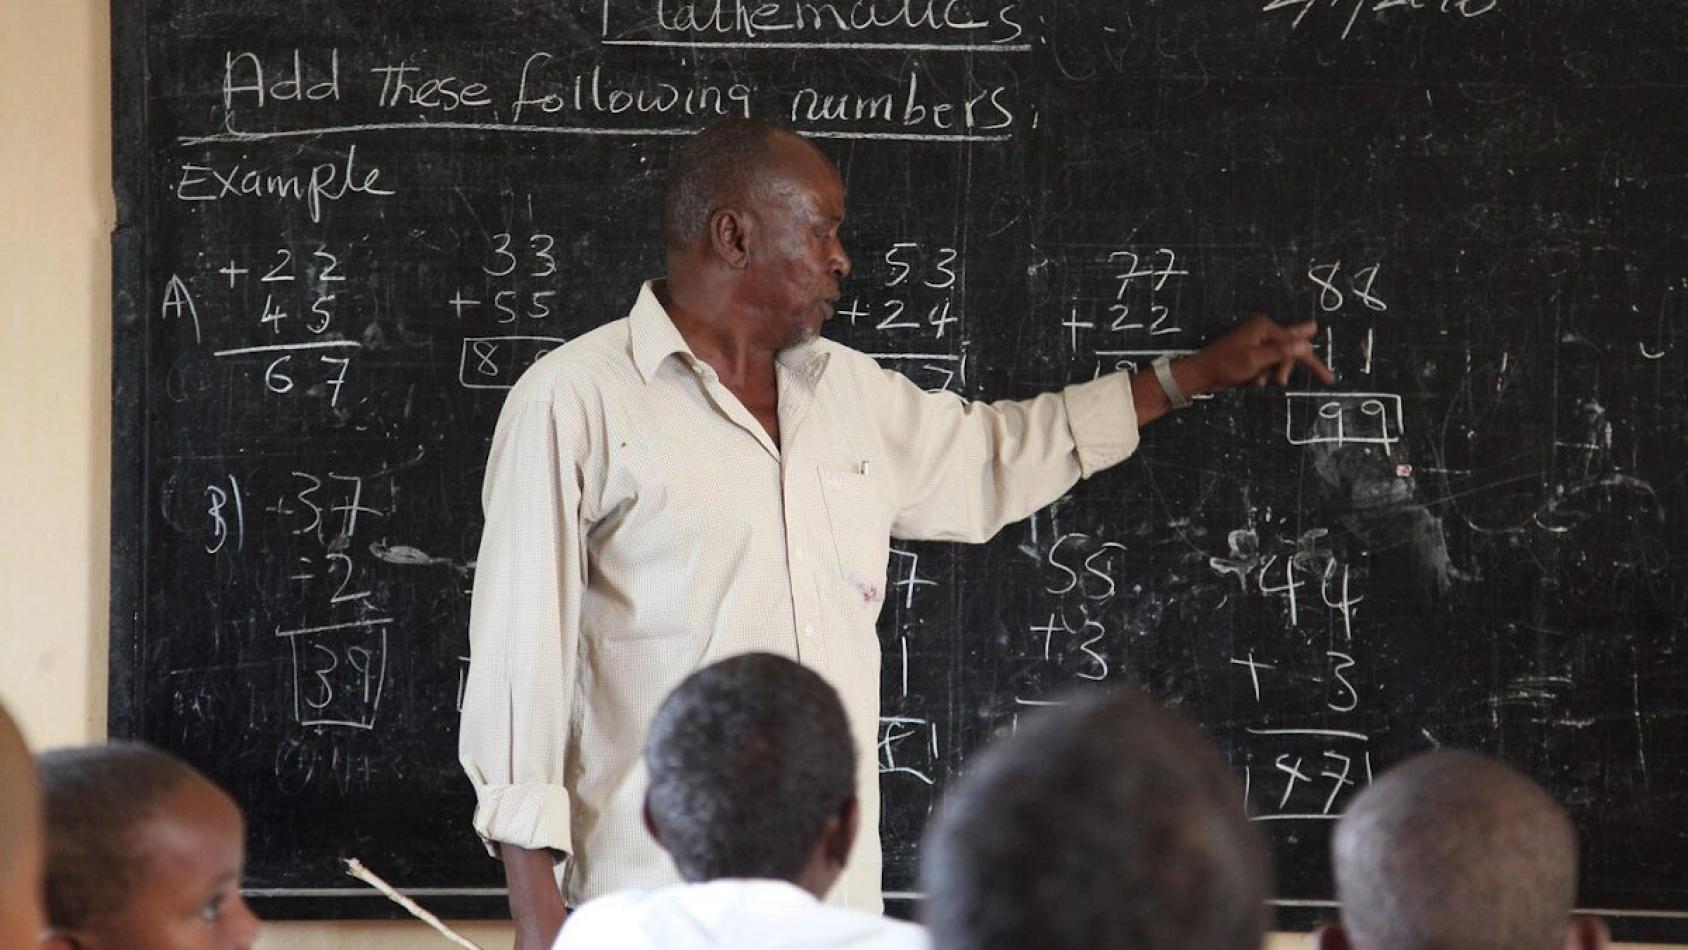 Mathematics.
Add These following numbers.
Example
A) +22 33 53 77 88
45 +55 +24 +22 11
67 8 7 99
B) +37 7 55 44
+2 1 +3 + 3
39 47